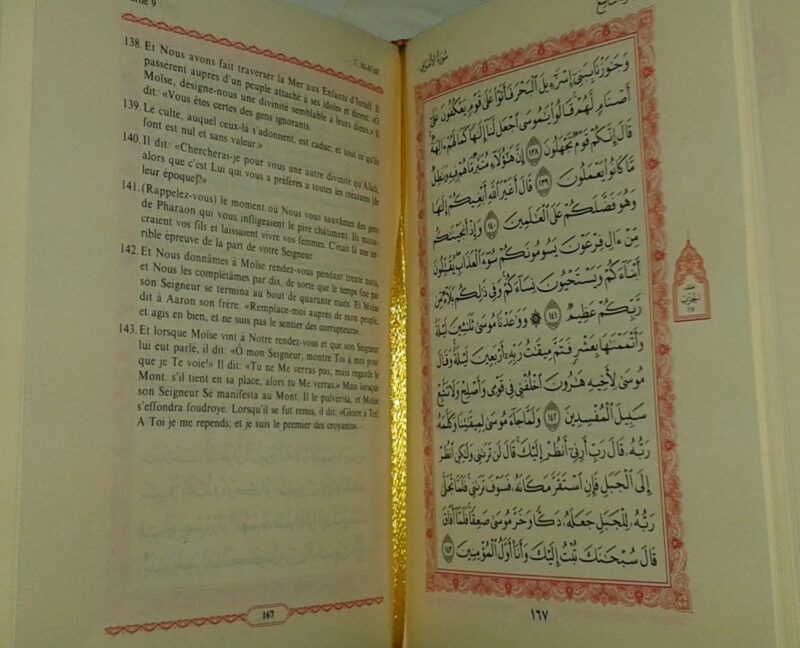 Partie 9
7. Al-A'râf
138. Et Nous avons fait traverser la Mer aux Enfants d'Israël. Il
passèrent auprès d'un peuple attaché à ses idoles et dirent: «Ô
Moïse, désigne-nous une divinité semblable à leurs dieux.» Il
dit: «Vous êtes certes des gens ignorants.
139. Le culte, auquel ceux-là s'adonnent, est caduc; et tout ce qu'ils
font est nul et sans valeur.»
140. Il dit: «Chercherai-je pour vous une autre divinité qu'Allah,
alors que c'est Lui qui vous a préférés à toutes les créatures [de
leur époque]?»
141. (Rappelez-vous) le moment où Nous vous sauvâmes des gens
de Pharaon qui vous infligeaient le pire châtiment. Ils massa-
craient vos fils et laissaient vivre vos femmes. C'était là une ter-
rible épreuve de la part de votre Seigneur
142. Et Nous donnâmes à Moïse rendez-vous pendant trente nuits,
et Nous les complétâmes par dix, de sorte que le temps fixé par
son Seigneur se termina au bout de quarante nuits. Et Moïse
dit à Aaron son frère: «Remplace-moi auprès de mon peuple,
et agis en bien, et ne suis pas le sentier des corrupteurs».
143. Et lorsque Moïse vint à Notre rendez-vous et que son Seigneur
lui eut parlé, il dit: «Ô mon Seigneur, montre Toi à moi pour
que je Te voie!» Il dit: «Tu ne Me verras pas; mais regarde le
Mont: s'il tient en sa place, alors tu Me verras.» Mais lorsque
son Seigneur Se manifesta au Mont, Il le pulvérisa, et Moïse
s'effondra foudroyé. Lorsqu'il se fut remis, il dit: «Gloire à Toi!
A Toi je me repends; et je suis le premier des croyants».
167
سُورَةُ الأَعْرَافِ
وَجَٰوَزْنَا بِبَنِىٓ إِسْرَٰٓءِيلَ ٱلْبَحْرَ فَأَتَوْا۟ عَلَىٰ قَوْمٍ يَعْكُفُونَ عَلَىٰٓ
أَصْنَامٍ لَّهُمْ قَالُوا۟ يَٰمُوسَى ٱجْعَل لَّنَآ إِلَٰهًا كَمَا لَهُمْ ءَالِهَةٌ
قَالَ إِنَّكُمْ قَوْمٌ تَجْهَلُونَ ١٣٨ إِنَّ هَٰٓؤُلَآءِ مُتَبَّرٌ مَّا هُمْ فِيهِ وَبَٰطِلٌ
مَّا كَانُوا۟ يَعْمَلُونَ ١٣٩ قَالَ أَغَيْرَ ٱللَّهِ أَبْغِيكُمْ إِلَٰهًا
وَهُوَ فَضَّلَكُمْ عَلَى ٱلْعَٰلَمِينَ ١٤٠ وَإِذْ أَنجَيْنَٰكُم
مِّنْ ءَالِ فِرْعَوْنَ يَسُومُونَكُمْ سُوٓءَ ٱلْعَذَابِ يُقَتِّلُونَ
أَبْنَآءَكُمْ وَيَسْتَحْيُونَ نِسَآءَكُمْ وَفِى ذَٰلِكُم بَلَآءٌ مِّن
رَّبِّكُمْ عَظِيمٌ ١٤١ ۞ وَوَٰعَدْنَا مُوسَىٰ ثَلَٰثِينَ لَيْلَةً
وَأَتْمَمْنَٰهَا بِعَشْرٍ فَتَمَّ مِيقَٰتُ رَبِّهِۦٓ أَرْبَعِينَ لَيْلَةً وَقَالَ
مُوسَىٰ لِأَخِيهِ هَٰرُونَ ٱخْلُفْنِى فِى قَوْمِى وَأَصْلِحْ وَلَا تَتَّبِعْ
سَبِيلَ ٱلْمُفْسِدِينَ ١٤٢ وَلَمَّا جَآءَ مُوسَىٰ لِمِيقَٰتِنَا وَكَلَّمَهُۥ
رَبُّهُۥ قَالَ رَبِّ أَرِنِىٓ أَنظُرْ إِلَيْكَ قَالَ لَن تَرَىٰنِى وَلَٰكِنِ ٱنظُرْ
إِلَى ٱلْجَبَلِ فَإِنِ ٱسْتَقَرَّ مَكَانَهُۥ فَسَوْفَ تَرَىٰنِى فَلَمَّا تَجَلَّىٰ
رَبُّهُۥ لِلْجَبَلِ جَعَلَهُۥ دَكًّا وَخَرَّ مُوسَىٰ صَعِقًا فَلَمَّآ أَفَاقَ
قَالَ سُبْحَٰنَكَ تُبْتُ إِلَيْكَ وَأَنَا۠ أَوَّلُ ٱلْمُؤْمِنِينَ ١٤٣
نصف
الحزب
١٧
١٦٧